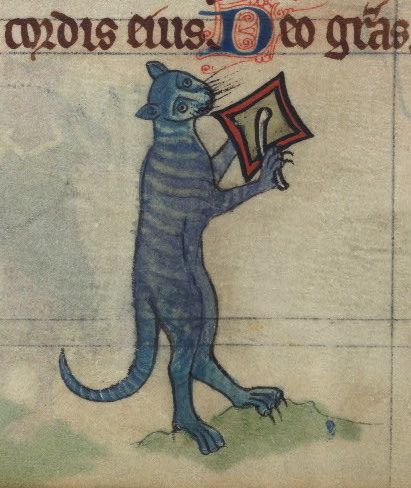 cordis eius. Deo gr̃as